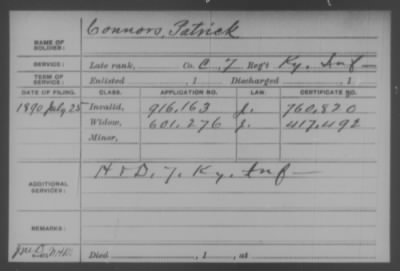 Connors, Patrick
NAME OF SOLDIER:
SERVICE: Late rank, Co. C. 7 Reg't Ky. Inf
TERM OF SERVICE: Enlisted , 1 Discharged , 1
DATE OF FILING. CLASS. APPLICATION NO. LAW. CERTIFICATE NO.
1890 July 25 Invalid, 916,163 J. 760,820
Widow, 601,276 J. 417,492
Minor,
ADDITIONAL SERVICES: H & D, 7, Ky. Inf
REMARKS:
Died , 1 , at